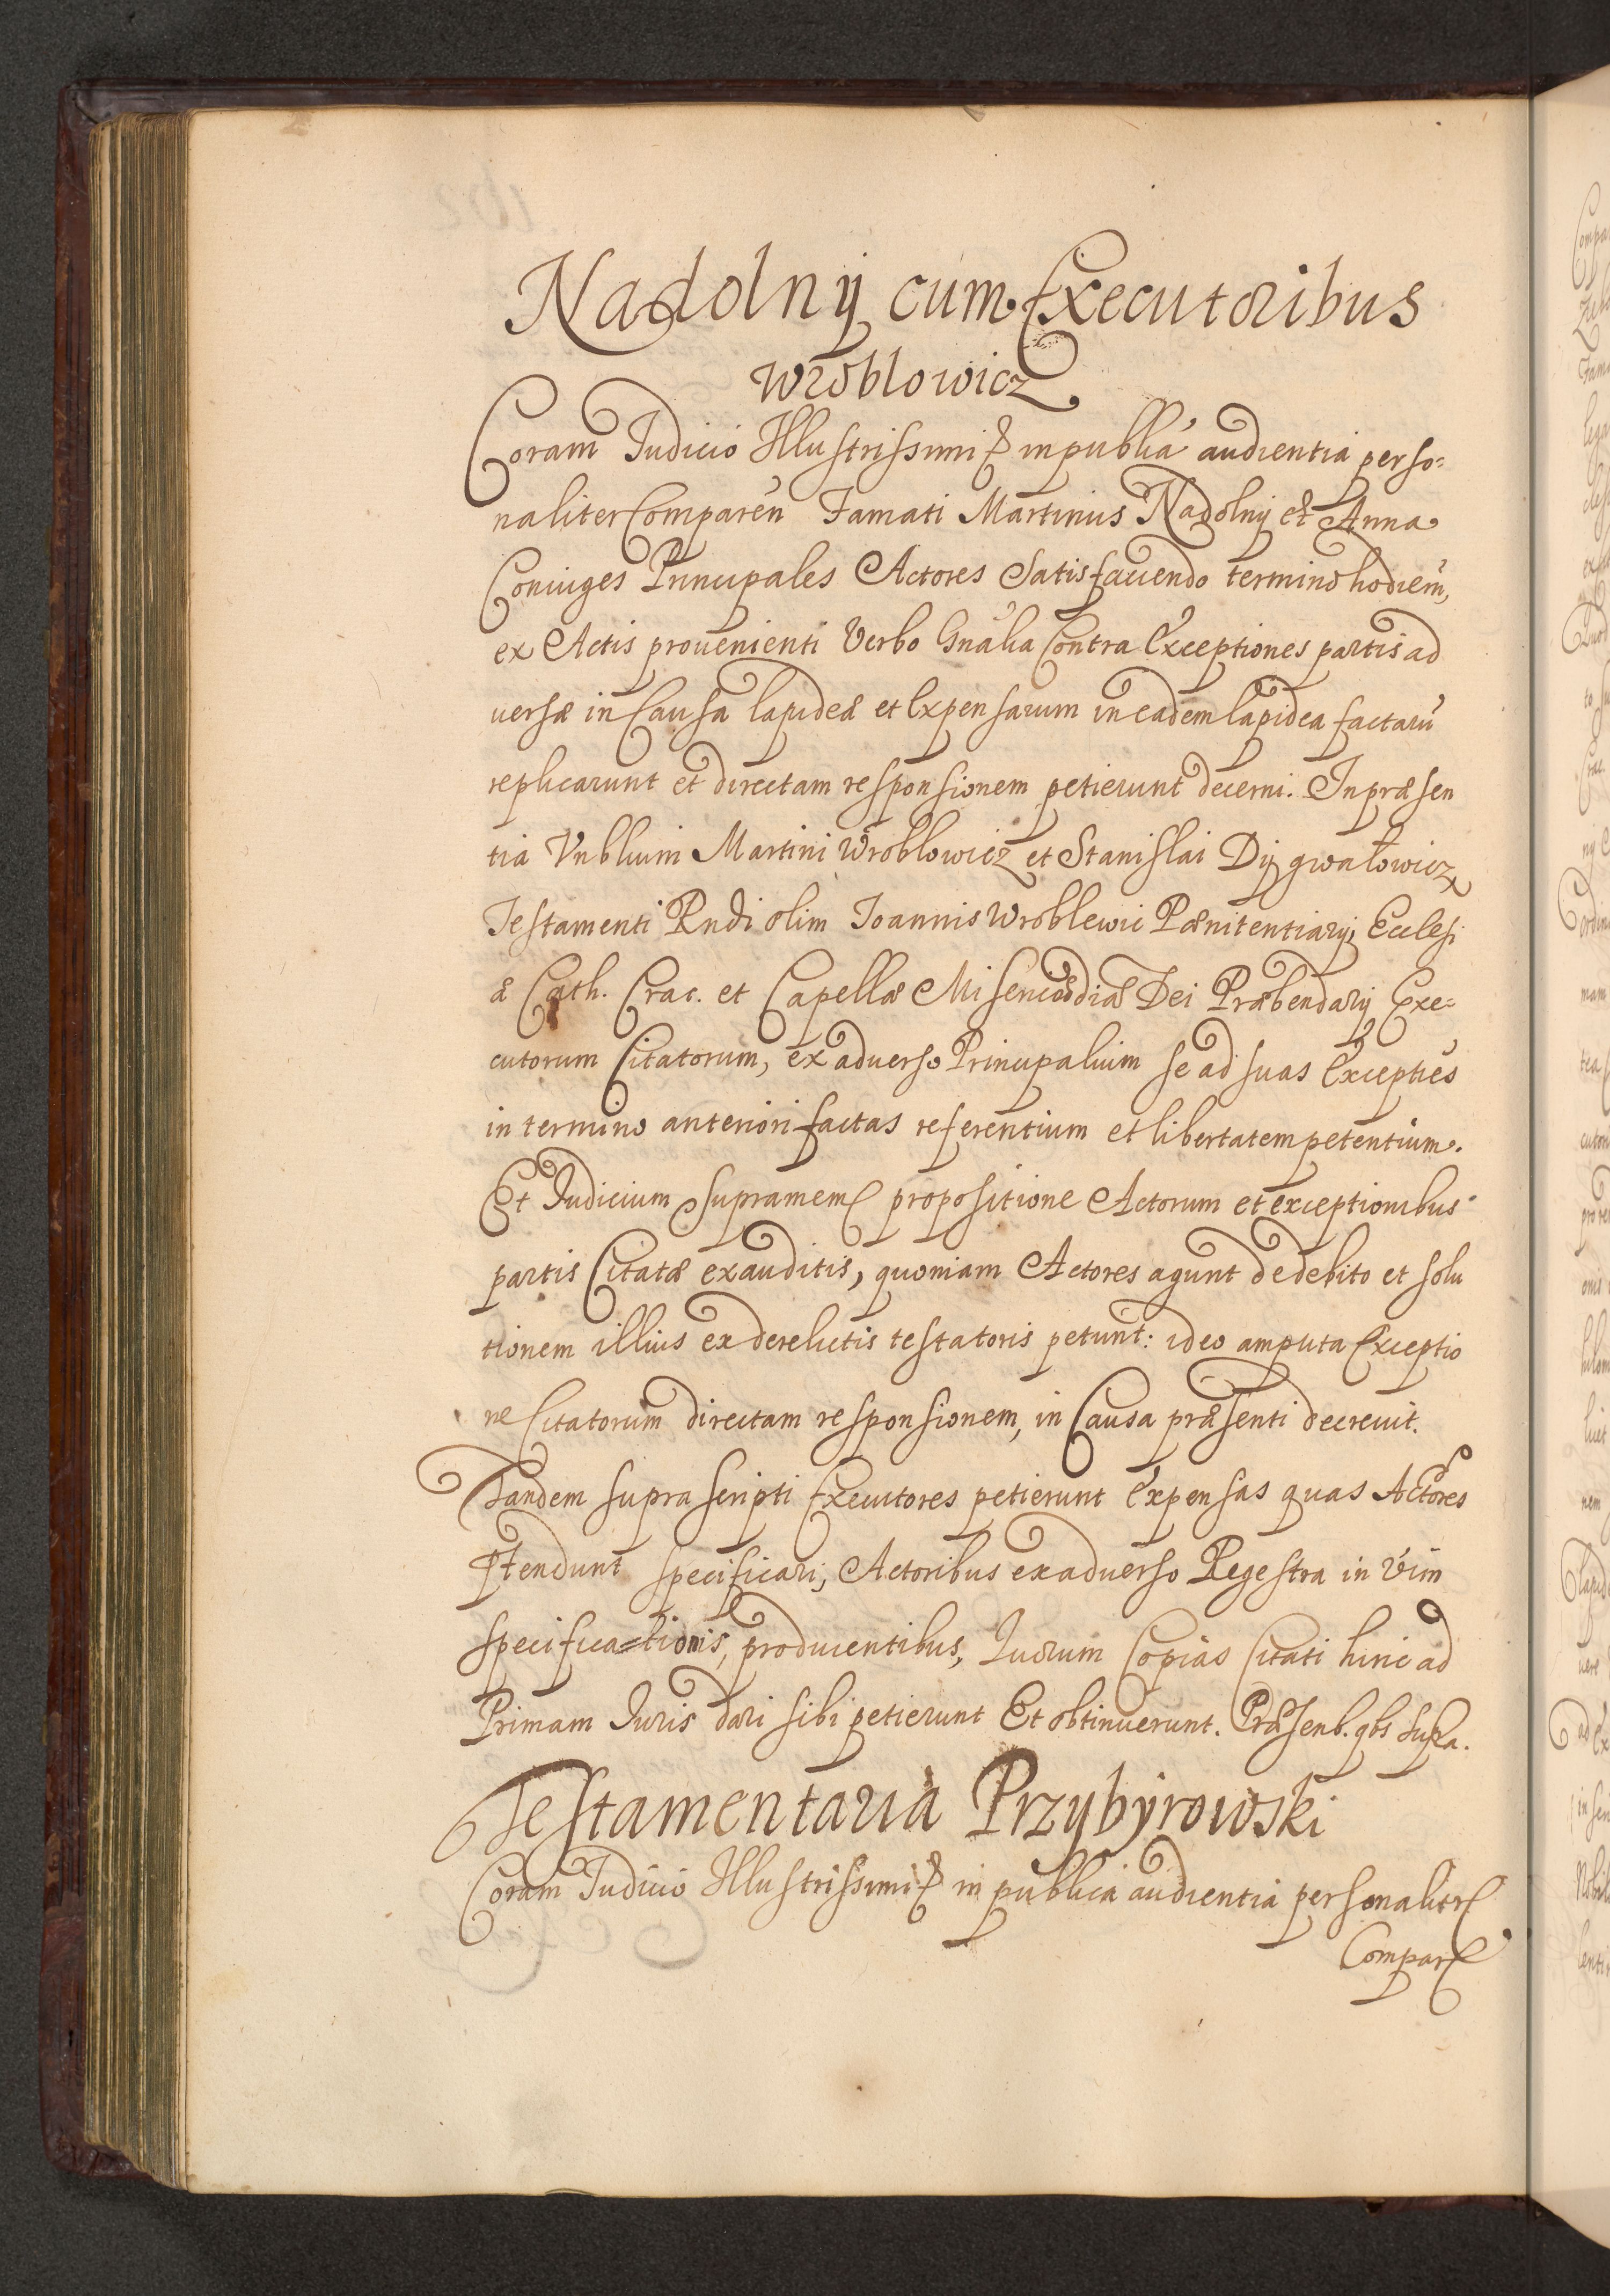 Nadolny cum Executoribus
Wroblowicz
Coram Judicio Illustrissimi & in publica audientia perso=
naliter Comparen Famati Martinus Nadolny et Anna
Coniuges Principales Actores Satisfaciendo termino hodiern,
ex Actis prouenienti Verbo Gnalia Contra Exceptiones partis ad
uersæ in Causa lapideæ et Expensarum in eadem lapidea factarū
replicarunt et directam responsionem petierunt decerni. In præsen
tia Vnblium Martini Wroblowicz et Stanislai Dygwałowicz
Testamenti Rndi olim Joannis Wroblewic Pænitentiarij Ecclesi
æ Cath. Crac. et Capellæ Misericordiæ Dei Præbendarij Exe=
cutorum Citatorum, ex aduerso Principalium se ad suas Exceptiēs
in termino anteriori factas referentium et libertatem petentium.
Et Judicium supramem propositione Actorum et exceptionibus
partis Citatæ exauditis, quoniam Actores agunt de debito et solu
tionem illius ex derelictis testatoris petunt: ideo amputa Exceptio
ne Citatorum directam responsionem, in Causa præsenti decreuit.
Tandem supra scripti Executores petierunt Expensas quas Actores
Ptendunt specificari, Actoribus ex aduerso Regestra in Vim
specifica=tionis, producentibus, Quorum Copias Citati hinc ad
Primam Juris dari sibi petierunt Et obtinuerunt. Præsenb. qbs supra.
Testamentaria Przybyrowski
Coram Judicio Illustrissimi & in publica audientia personalitr
Compar